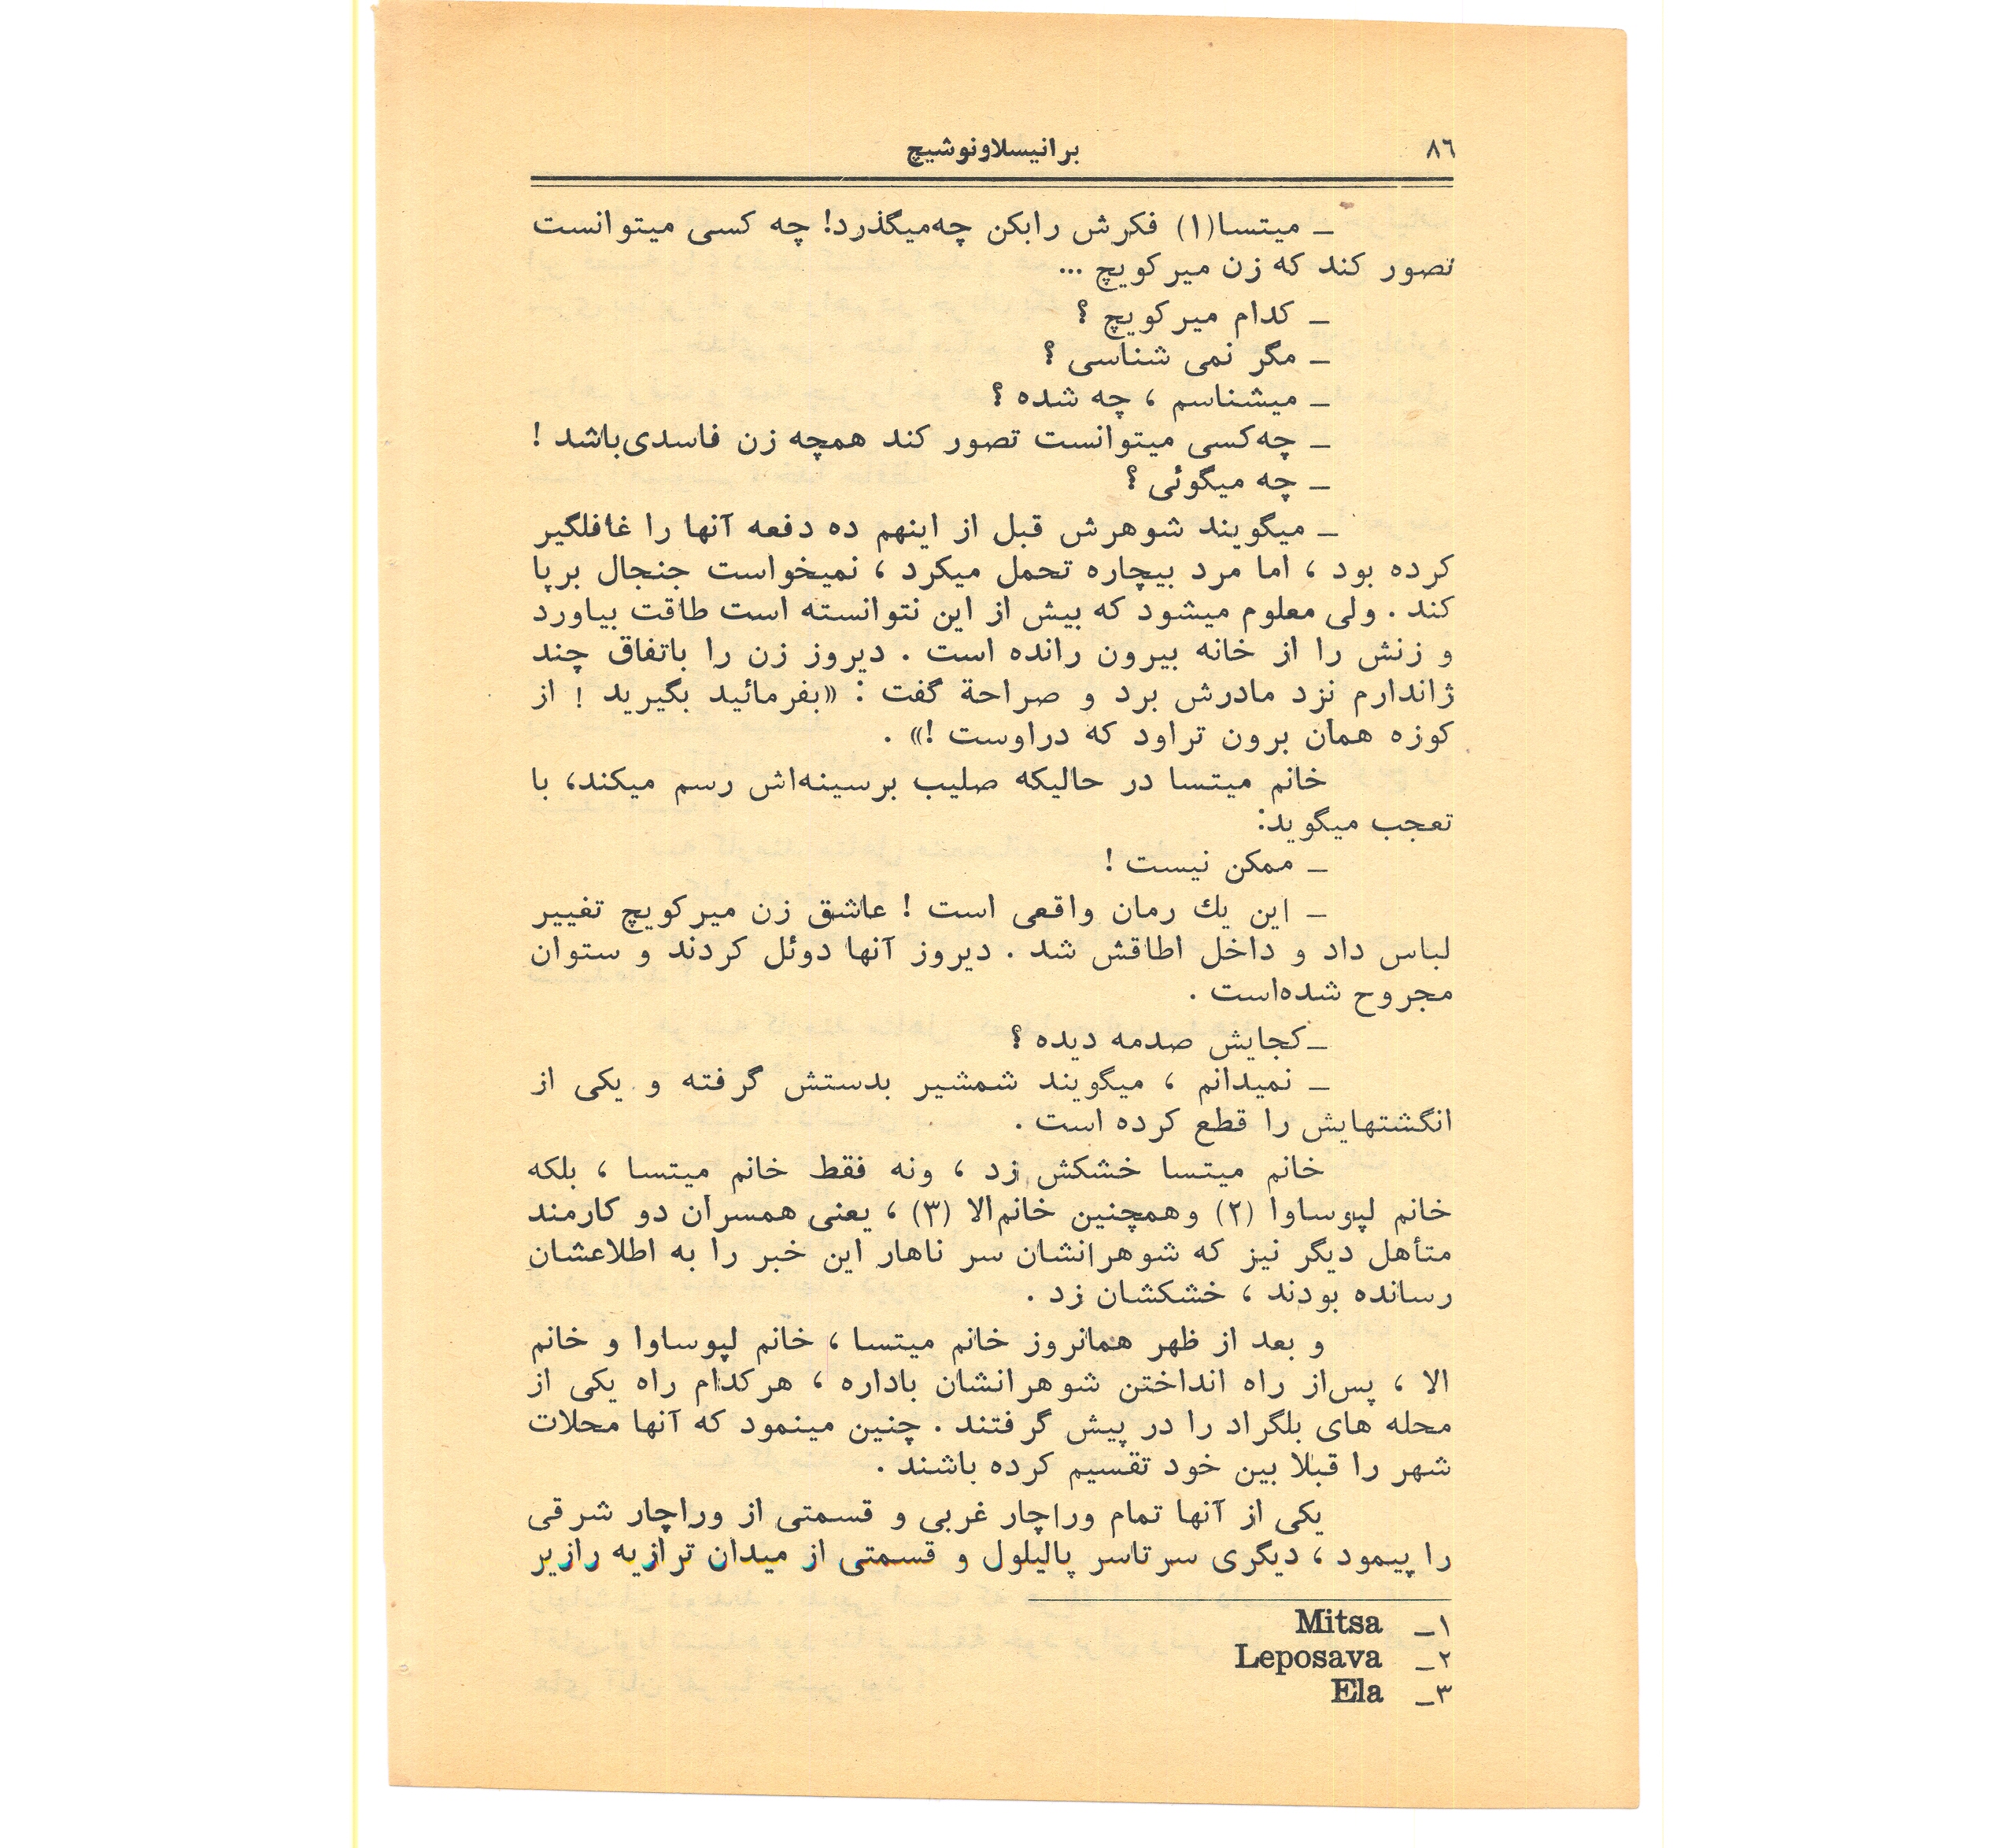 ۸۶
برانیسلاونوشیچ
ـ میتسا(۱) فکرش رابکن چه‌میگذرد! چه کسی میتوانست
تصور کند که زن میرکویچ ...
ـ کدام میرکویچ ؟
ـ مگر نمی شناسی ؟
ـ میشناسم ، چه شده ؟
ـ چه‌کسی میتوانست تصور کند همچه زن فاسدی‌باشد !
ـ چه میگوئی ؟
ـ میگویند شوهرش قبل از اینهم ده دفعه آنها را غافلگیر
کرده بود ، اما مرد بیچاره تحمل میکرد ، نمیخواست جنجال برپا
کند . ولی معلوم میشود که بیش از این نتوانسته است طاقت بیاورد
و زنش را از خانه بیرون رانده است . دیروز زن را باتفاق چند
ژاندارم نزد مادرش برد و صراحة گفت : «بفرمائید بگیرید ! از
کوزه همان برون تراود که دراوست !» .
خانم میتسا در حالیکه صلیب برسینه‌اش رسم میکند، با
تعجب میگوید:
ـ ممکن نیست !
ـ این یك رمان واقعی است ! عاشق زن میرکویچ تغییر
لباس داد و داخل اطاقش شد . دیروز آنها دوئل کردند و ستوان
مجروح شده‌است .
ـ کجایش صدمه دیده ؟
ـ نمیدانم ، میگویند شمشیر بدستش گرفته و یکی از
انگشتهایش را قطع کرده است .
خانم میتسا خشکش زد ، ونه فقط خانم میتسا ، بلکه
خانم لپوساوا (۲) وهمچنین خانم‌الا (۳) ، یعنی همسران دو کارمند
متأهل دیگر نیز که شوهرانشان سر ناهار این خبر را به اطلاعشان
رسانده بودند ، خشکشان زد .
و بعد از ظهر همانروز خانم میتسا ، خانم لپوساوا و خانم
الا ، پس‌از راه انداختن شوهرانشان باداره ، هرکدام راه یکی از
محله های بلگراد را در پیش گرفتند . چنین مینمود که آنها محلات
شهر را قبلا بین خود تقسیم کرده باشند .
یکی از آنها تمام وراچار غربی و قسمتی از وراچار شرقی
را پیمود ، دیگری سرتاسر پالیلول و قسمتی از میدان ترازیه رازیر
۱ـ Mitsa
۲ـ Leposava
۳ـ Ela